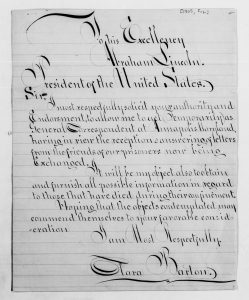 To his Excellency
Abraham Lincoln.
President of the United States.
Sir.
I most respectfully solicit your authority and
Endorsement to allow me to act Temporarily as
General Correspondent at Annapolis Maryland
having in view the reception & answering of letters
from the friends of our prisoners now being
Exchanged.
It will be my object also to obtain
and furnish all possible information in regard
to those that have died during their confinement
Hoping that the objects contemplated may
commend themselves to your favorable consid
eration
I am Most Respectfully
Clara Barton.